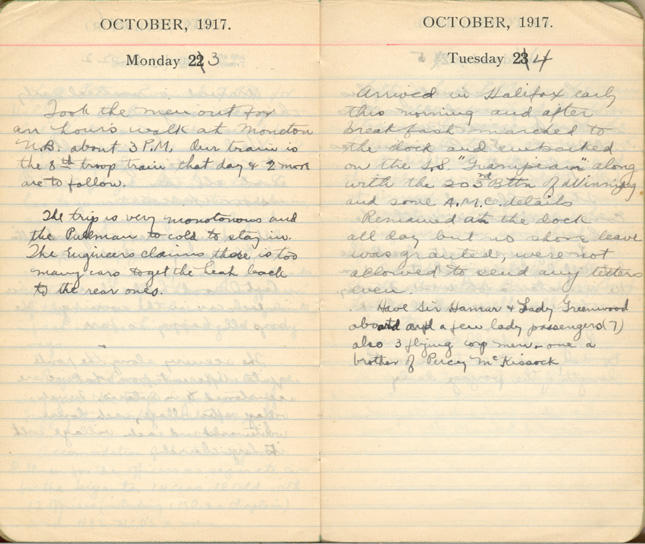 OCTOBER, 1917.
Monday 23
Took the men out for
an hours walk at Moncton
N.B. about 3 P.M. Our train is
the 8th troop train that day & 2 more
are to follow.
The trip is very monotonous and
the Pullman to cold to stay in.
The Engineers claims there is too
many cars to get the heat back
to the rear ones.
OCTOBER, 1917.
Tuesday 24
Arrived in Halifax early
this morning and after
breakfast marched to
the dock and embarked
on the S.S. "Grampian" along
with the 203rd Bttn of Winnipeg
and some A.M.C. details
Remained at the dock
all day but no shore leave
was granted, were not
allowed to send any letters
even.
Have Sir Hamar & Lady Greenwood
aboard and a few lady passengers (7)
also 3 flying corp men - one a
brother of Percy McKissock